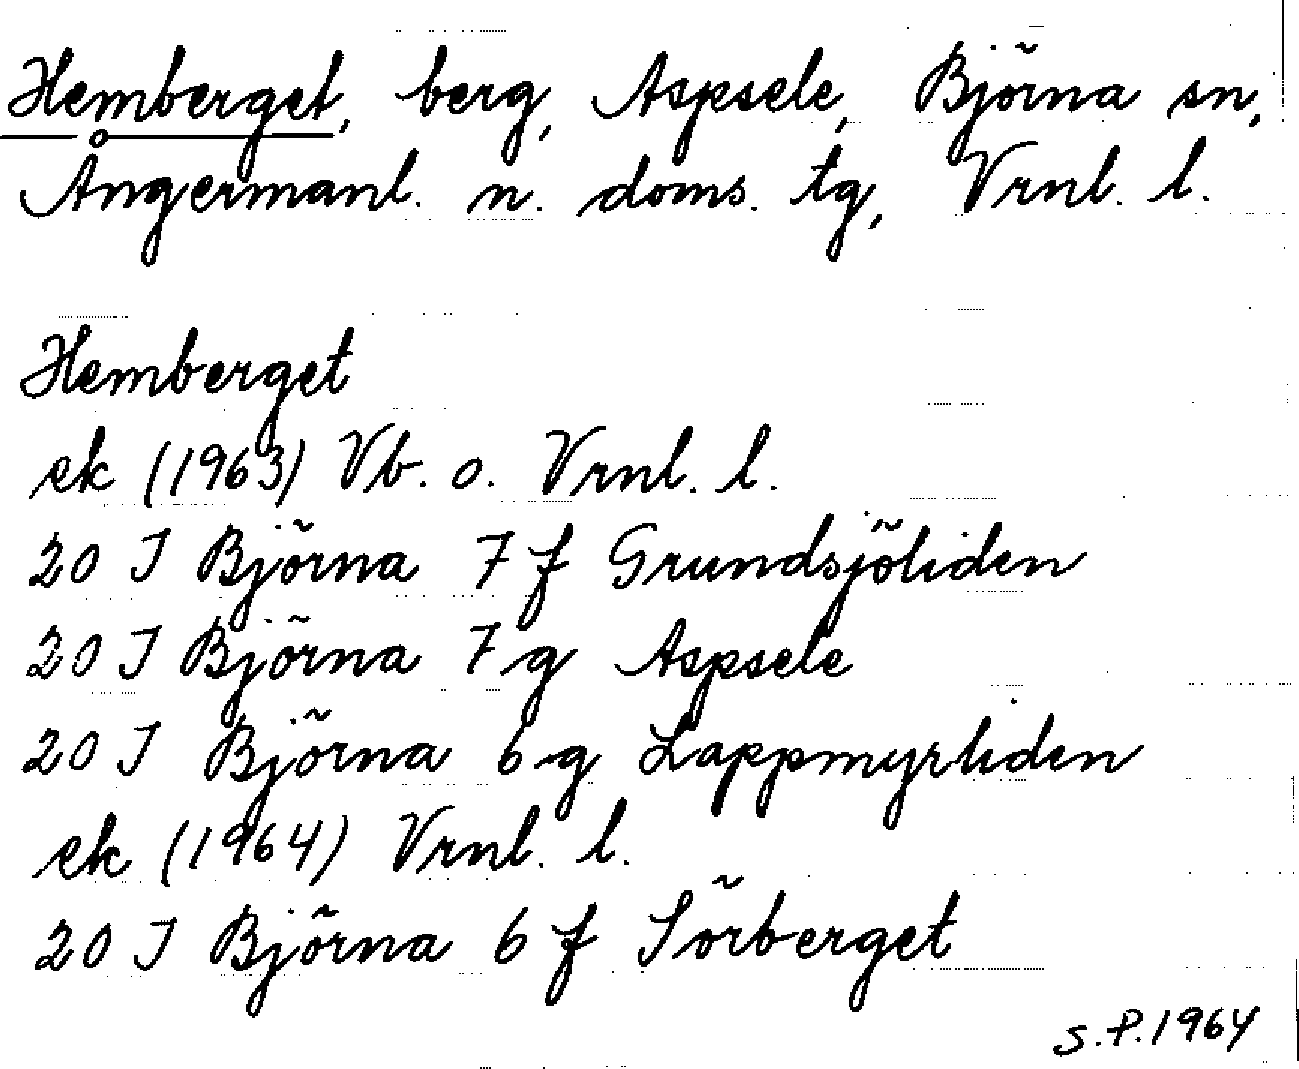 Hemberget, berg, Aspsele, Björna sn,
Ångermanl. n. doms. tg, Vrnl. l.
Hemberget
ek (1963) Vb. o. Vrnl. l.
20 J Björna 7 f Grundsjöliden
20 J Björna 7 g Aspsele
20 J Björna 6 g Lappmyrliden
ek (1964) Vrnl. l.
20 J Björna 6 f Sörberget
S.P. 1964